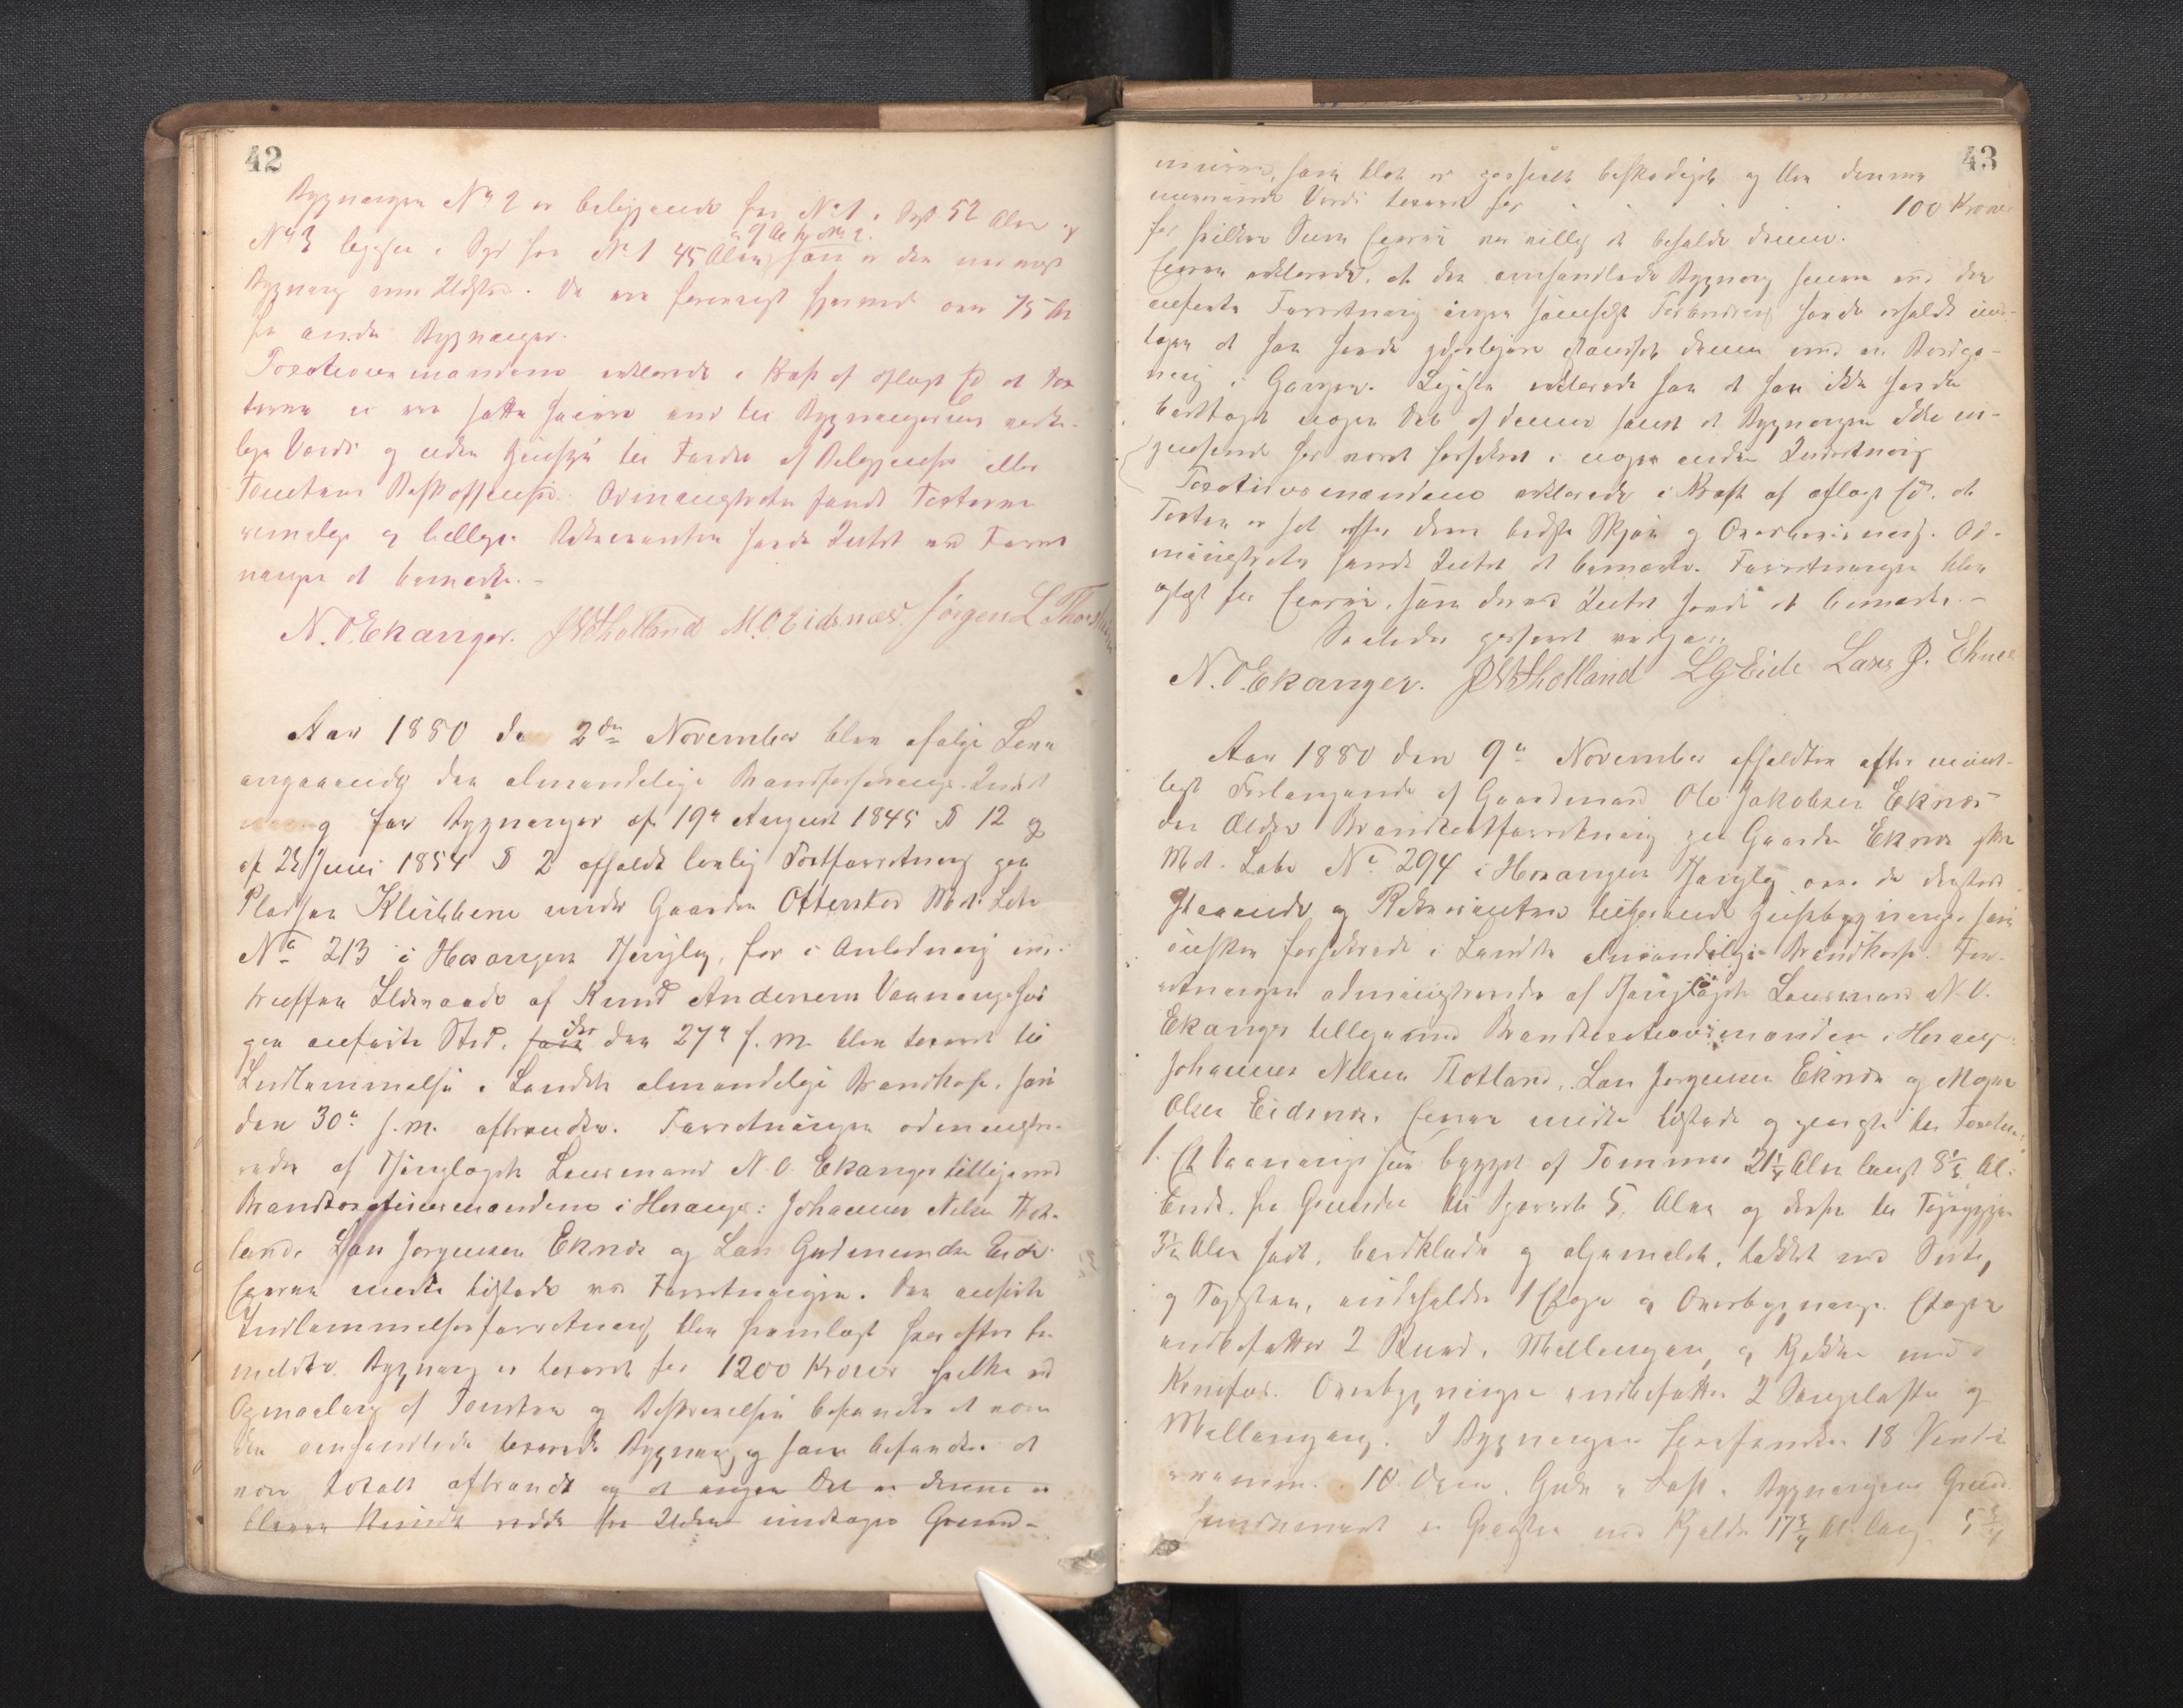 42
Bygningen No 2 er beliggende fra No 1 i Syd 52 Alen og
No 3 ligger i Syd fra No 1 45 Alen, som er den nærmest
a 9 Al fra No 2.
Bygning med Ildsted. De ere forøvrigt fjernede over 75 Al
fra andre Bygninger.
Taxationsmændene erklærede i Kraft af aflagt Ed at Tax
terne er ere satte svarende til Bygningernes virke-
lige Værdi og uden Hensyn til Faren af Beliggenhed eller
Tomtens Beskaffenhed. Administrator fandt Taxterne
rimelige og billige. Rekvirenten havde Intet ved Forret
ningen at bemærke. -
N. O. Ekanger. JNTholland M. O Eidsnæs. Jørgen L
Aar 1880 den 2den November blev ifølge Lov
angaaende den almindelige Brandforsikrings-Indret
g for Bygninger af 19de August 1845 § 12 og
af 28 Juni 1854 § 2 afholdt lovlig Taxtforretning paa
Pladsen under Gaarden Otterstad Mat. Løbe
No 213 i Hosanger Thinglag, for i Anledning ind-
truffen Ildsvaade af Knud Andersens Vaaningshus
paa anførte Sted, som der den 27de f. m. blev taxeret til
Indlemmelse i Landets almindelige Brandkasse, som
den 30de f. m. afbrændte. Forretningen administre-
redes af Thinglagets Lensmand N. O. Ekanger tilligemed
Brandtaxationsmændene i Hosanger: Johannes Nilsen Thot-
land, Lars Jørgensen Eknæs og Lars Gudmundsen Eide
Eieren mødte tilstede ved Forretningen. Den anførte
Indlemmelsesforretning blev fremlagt hvorefter be-
meldte Bygning er taxeret for 1200 Kroner hvilke ved
Opmaaling af Tomten og Beskrivelsen befandtes at være
den omhandlede taxerede Bygning og som befandtes at
være totalt afbrændt og at ingen Del af denne er
bleven reddet fra Ilden undtagen Grund-
43
muren, som blot er partielt beskadiget og blev denne
nuværende Værdi taxeret for . . . . 100 Kroner
for hvilken Sum Eieren var villig at beholde denne.
Eieren erklærede, at den omhandlede Bygning siden den
anførte Forretning ingen Forandring havde erholdt und-
tagen at han havde yderligere istandsat denne med en Bordga-
ning i Gangen. Ligesaa erklærede han at han ikke havde
borttaget nogen Del af denne samt at Bygningen ikke vi-
tende har været forsikret i nogen anden Indretning
Taxationsmændene erklærede i Kraft af aflagt Ed, at
Taxten er sat efter deres bedste Skjøn og Overbevisning. Ad-
ministrator havde Intet at bemærke. Forretningen blev
oplæst for Eieren, som derved Intet havde at bemærke. -
Saaledes passeret vidner
N. O. Ekanger. JNTholland LGEide Lars J. Eknes
Aar 1880 den 9de November afholdtes efter mundt-
ligt Forlangende af Gaardmand Ole Jakobsen Eknæs
den ældre Brandtaxtforretning paa Gaarden Eknæs
Mat. Løbe No 294 i Hosangers Thinglag over de dersteds
staaende og Rekvirenten tilhørende Husbygninger som
ønskes forsikrede i Landets almindelige Brandkasse. For-
retningen administreredes af Thinglagets Lensmand N. O.
Ekanger tilligemed Brandtaxationsmændene i Hosanger
Johannes Nilsen Thotland, Lars Jørgensen Eknæs og Mogens
Olsen Eidsnæs. Eieren mødte tilstede og paaviste til Taxation
1. Et Vaaningshus bygget af Tømmer 21¼ Alen langt 8½ Al.
bredt, fra Grunden til Gesimsen 5 Alen og derfra til Tagryggen
3½ Alen høit, bordklædt og oljemalet, tækket med
og Tagsten, indeholder 1 Etage og Overbygninger. Etagen
indbefatter 2 Stuer, Mellemgang, og Kjøkken med
. Overbygningen indbefatter 2 og
Mellemgang. I Bygningen forefindes 18 Vindu
srammer. 10 Døre, Gulve og Loft. Bygningens Grund
er Graasten med Kjelder 17¾ Al. lang 5¾